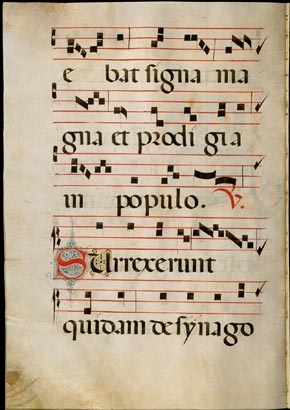 e bat signa ma
gna et prodi gia
in populo. V.
Surrexerunt
quidam de synago